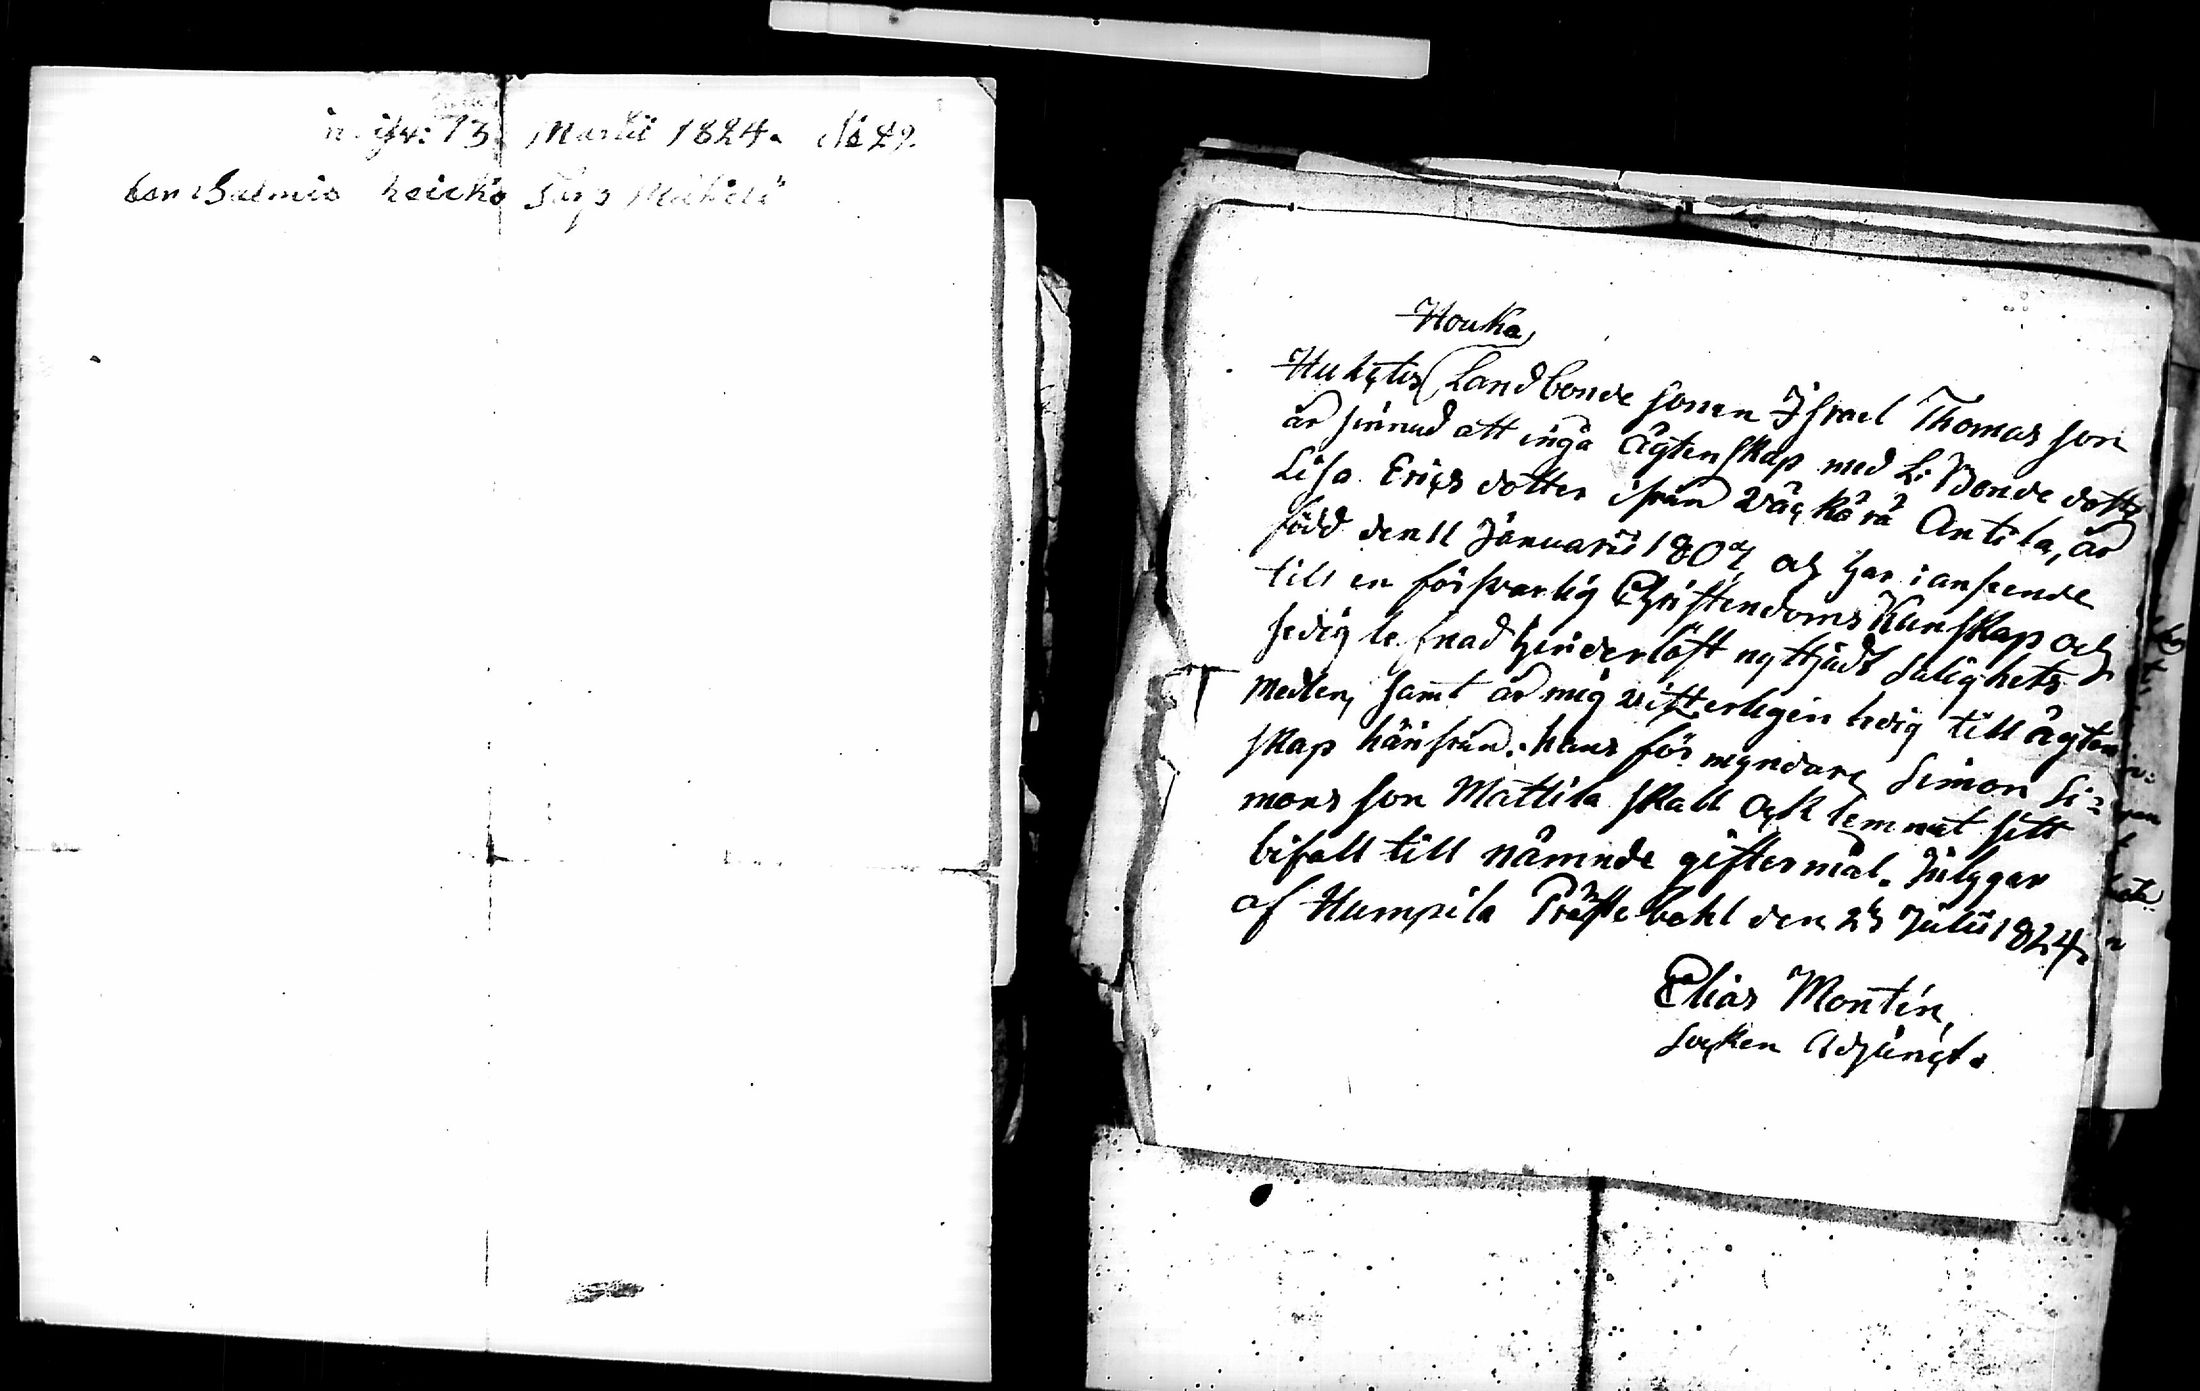 13 Martii 1824. No 49.
Houka
Huhtis Landbonde sonen Israel Thomas son
är sinnad att ingå Ägtenskap med L: Bonde dotter
Lisa Erics dotter ifrån Antila, är
född den 11 Januarii 1807 och har i anseende
till en försvarlig Christendoms Kunskap och
sedig lefnad hinderlöst nyttjadt Salighets
medlen, samt är mig vitterligen ledig till ägten
skap härifrån. hans förmyndare Simon Si=
mons son Mattila skall ock lemnat sitt
bifall till nämnde giftermål. Intygar
af Humpila Präste bohl den Julii 1824.
Elias Montin,
Socken Adjunct.